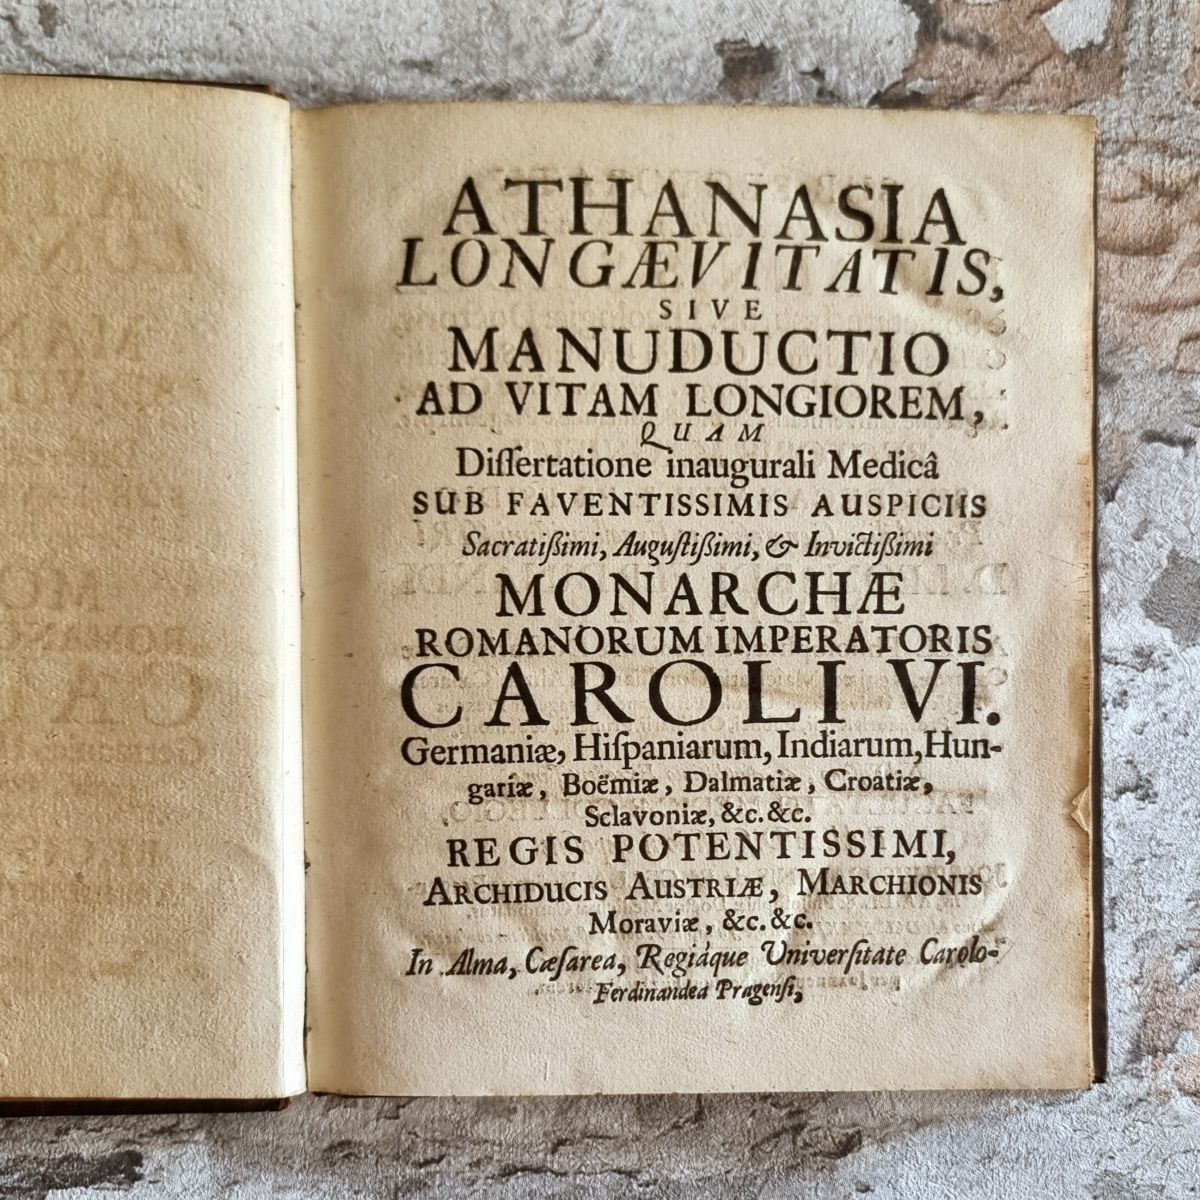 ATHANASIA
LONGÆVITATIS,
SIVE
MANUDUCTIO
AD VITAM LONGIOREM,
QUAM
Diſſertatione inaugurali Medicâ
SUB FAVENTISSIMIS AUSPICIIS
Sacratißimi, Auguſtißimi, & Invictißimi
MONARCHÆ
ROMANORUM IMPERATORIS
CAROLI VI.
Germaniæ, Hiſpaniarum, Indiarum, Hun-
gariæ, Boëmiæ, Dalmatiæ, Croatiæ,
Sclavoniæ, &c. &c.
REGIS POTENTISSIMI,
ARCHIDUCIS AUSTRIÆ, MARCHIONIS
Moraviæ, &c. &c.
In Alma, Cæſarea, Regiáque Univerſitate Carolo-
Ferdinandea Pragenſi,